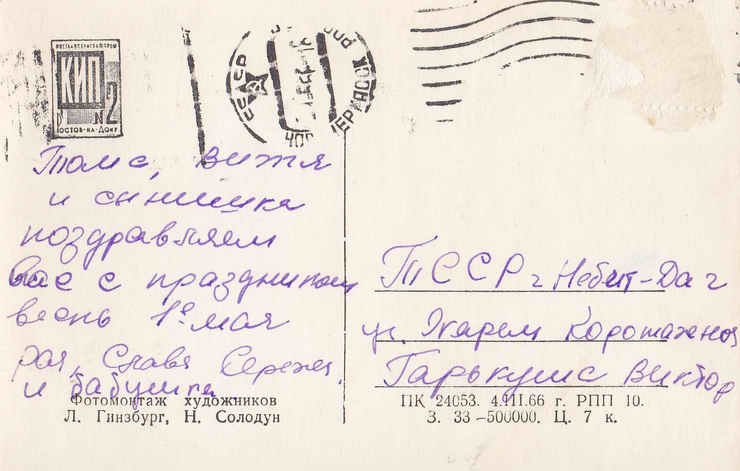 КИП
№ 2
РОСТОВ-НА-ДОНУ
СССР
Тома, Витя
и сынишка
поздравляем
вас с праздником
весны 1е мая
Рая, Слава Сережа
и бабушка
Фотомонтаж художников
Л. Гинзбург, Н. Солодун
ТССР г Небит-Даг
ул.
Гарькуша Виктор
ПК 24053. 4.III.66 г. РПП 10.
З. 33–500000. Ц. 7 к.